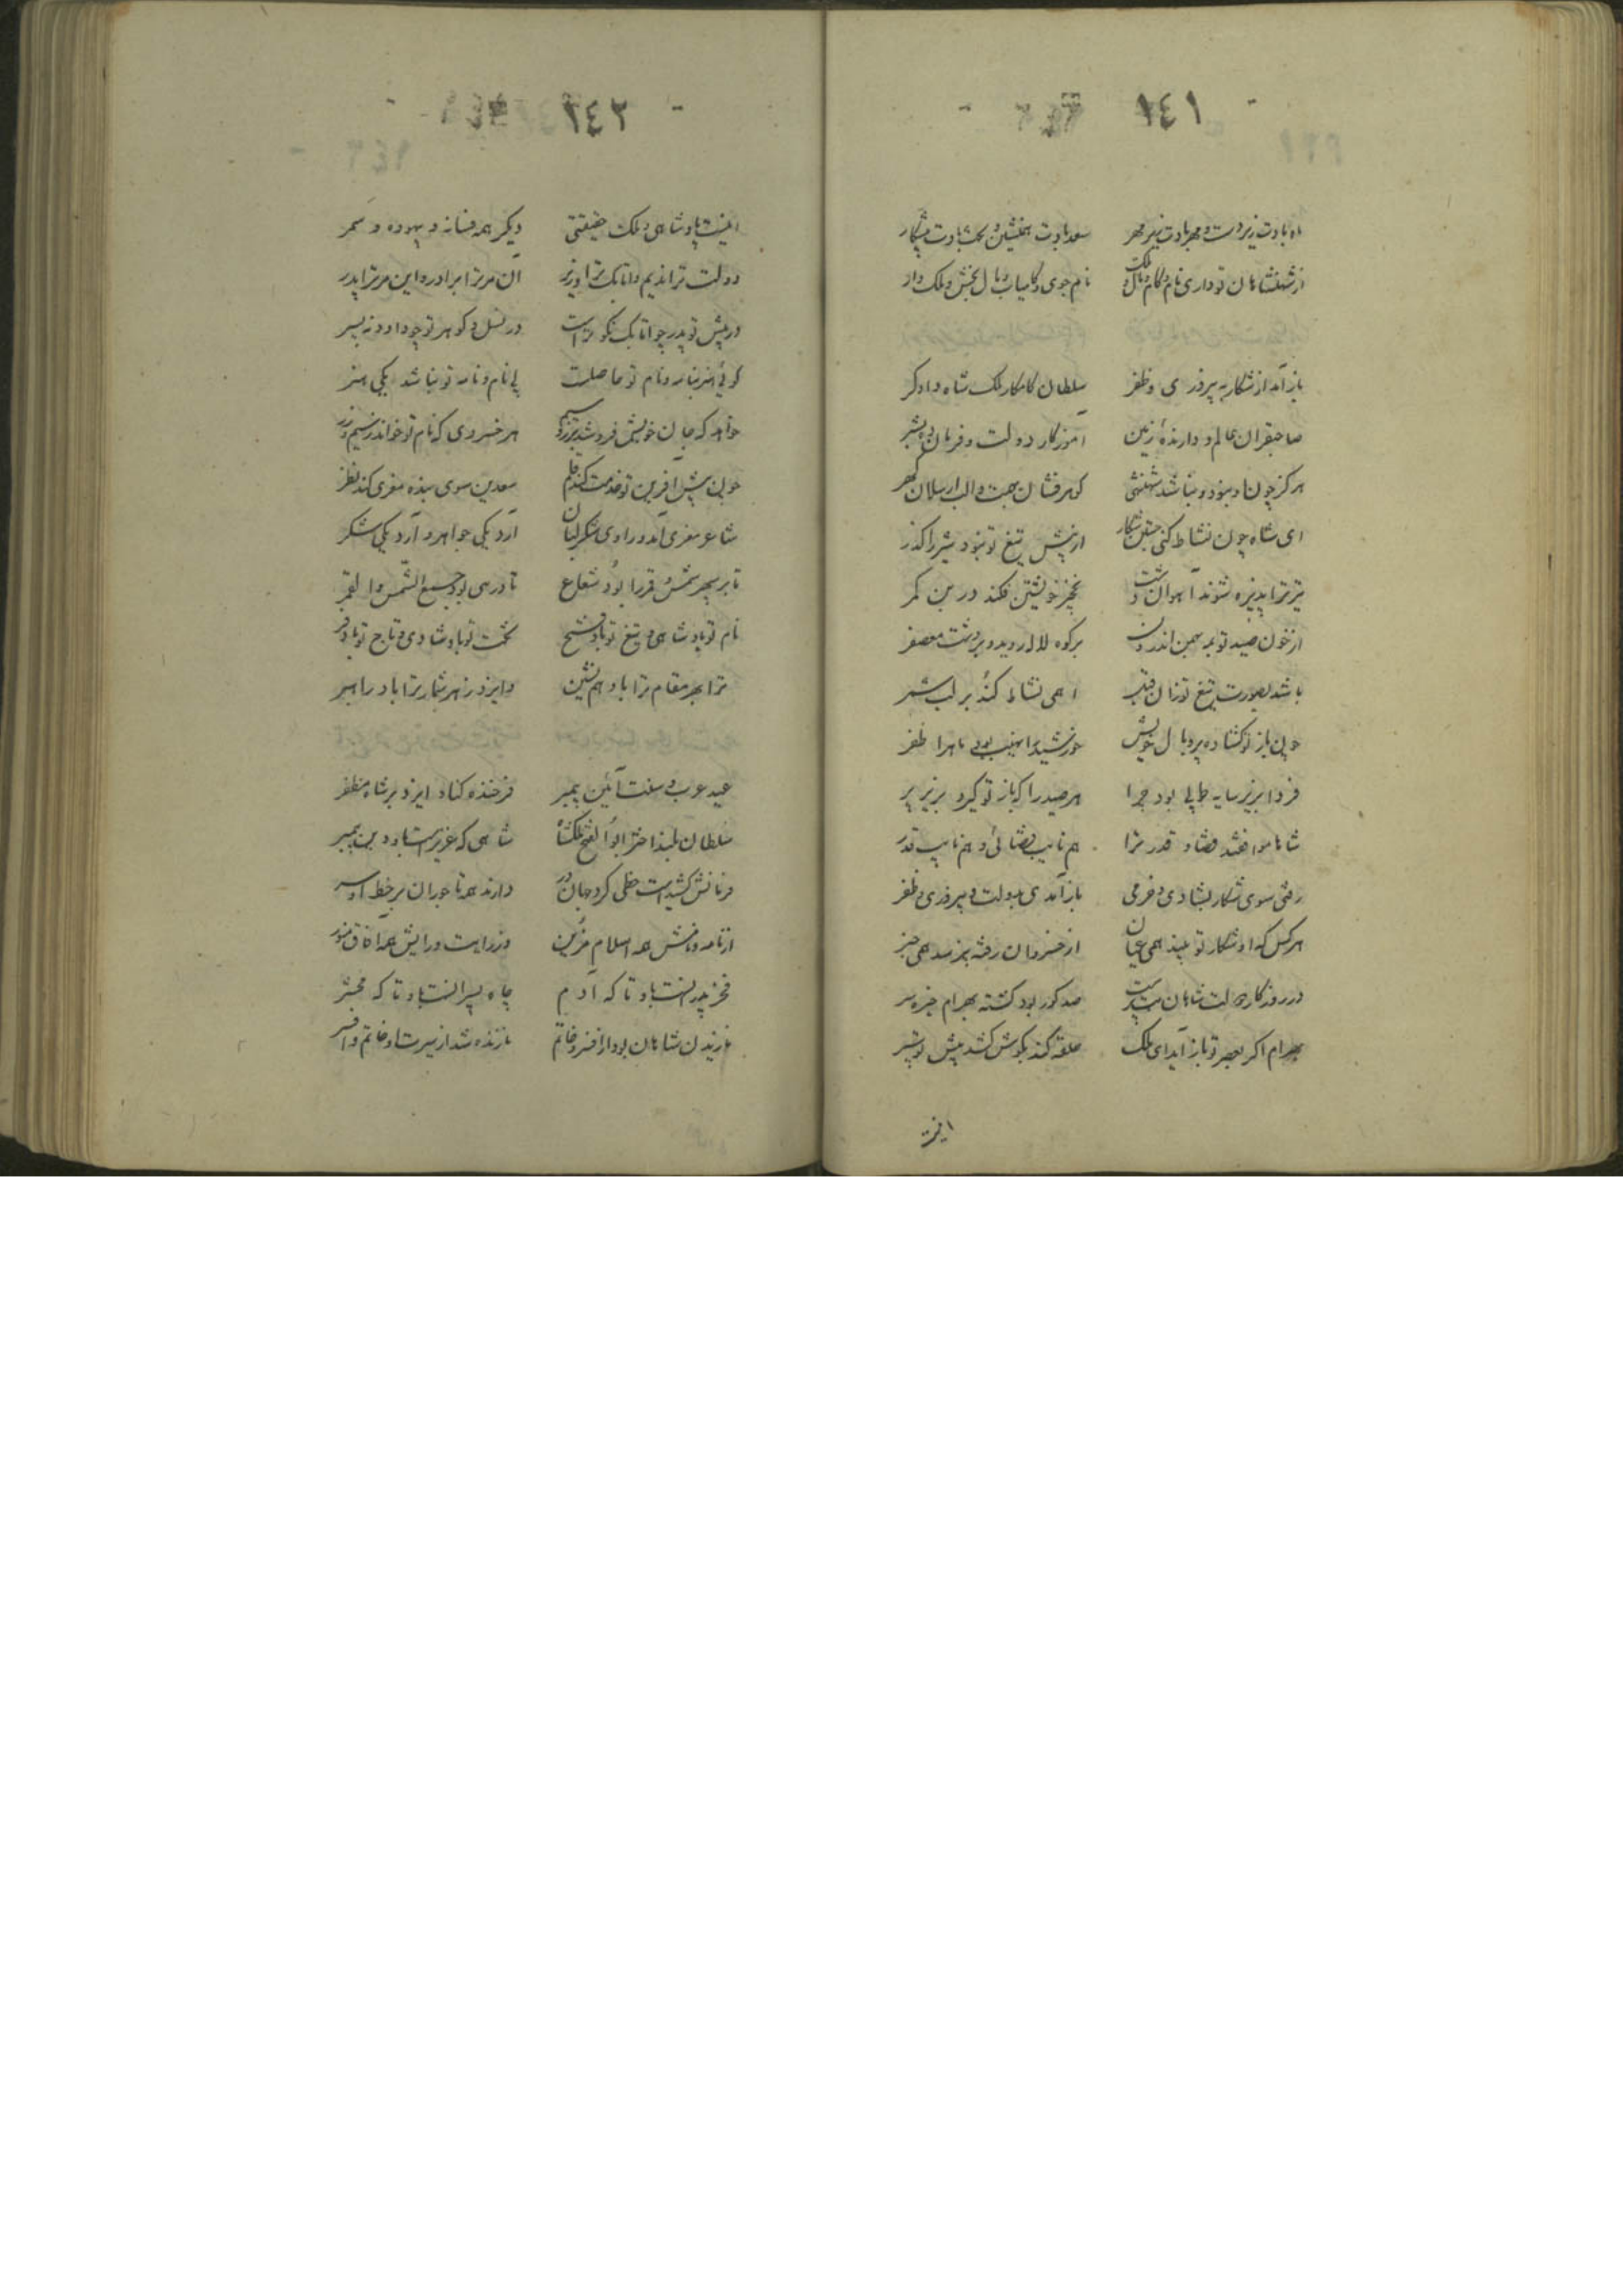 ١٤١
ماه بادت زیردست و مهر بادت زیر مهر سعد بادت همنشین و بخت بادت پیشکار
از شهنشاهان تو داری نام و کام و مال و ملک نام جوی و کامیاب و مال بخش و ملک دار
باز آمد از شکار به پیروزی و ظفر سلطان کامکار ملک شاه دادگر
صاحبقران عالم و دارنده زمین آموزگار دولت و فرمان ده بشر
هرگز چون او نبود و نباشد شهنشهی گوهر فشان بهمت و الب ارسلان گهر
ای شاه چون نشاط کنی جشن شکار از پیش تیغ تو نبود شیر را گذر
تیر ترا پذیره شوند آهوان دشت نخجیر خویشتن فکند در بن کمر
از خون صید تو به بهمن اندرون بر کوه لاله روید و بر دشت معصفر
باشد بصورت تیغ تو زان قبل
چون باز تو گشاده پر و بال خویش خورشید را نهیب بود ماه را ظفر
فردا بزیر سایه طوبی بود چرا هر صید را که باز تو گیرد بزیر پر
شاها موافقند قضا و قدر ترا هم نایب قضائی و هم نایب قدر
رفتی سوی شکار بشادی و خرمی باز آمدی بدولت و پیروزی و ظفر
هر کس که او شکار تو بیند همی عیان از خسروان رفته نپرسد همی خبر
در روزگار دولت شاهان بت پرست صد گور بود کشته بهرام خیره سر
بهرام اگر بعصر تو باز آید ای ملک حلقه کند بگوش کشد پیش تو
اینست
٢٤٢
اینست پادشاهی و ملک حقیقتی دیگر همه فسانه و بیهوده و سمر
دولت ترا ندیم و اتابک ترا وزیر آن مر ترا برادر و این مر ترا پدر
در پیش تو پدر چو اتابک نکوتر است در نسل و گوهر تو چو داود نه پسر
گوئی هنر بنامه و نام تو حاصلست بی نام و نامه تو نباشد یکی هنر
خواهد که جان خویش فروشد بزر و سیم هر خسروی که نام تو خواند ز سیم و زر
چون پیش آفرین تو خدمت کند قلم سعدین سوی بنده معزی کند نظر
شاعر معزی آمد و راوی شکر لبان آرد یکی جواهر و آرد یکی شکر
تا بر سپهر شمس و قمر را بود شعاع تا در نبی بود جمع الشمس و القمر
نام تو باد شاهی و تیغ تو باد فتح تخت تو باد شادی و تاج تو باد فر
ترا بهر مقام ترا باد هم نشین و ایزد ز هر شمار ترا باد راهبر
عید عرب و سنت آئین پیمبر فرخنده کناد ایزد بر شاه مظفر
سلطان بلند اختر ابوالفتح ملکشاه شاهی که عزیزست باو دین پیمبر
فرمانش کشیدست خطی گرد جهان در دارند همه تاجوران بر خط او سر
از نامه و نامش همه اسلام مزین وز رایت و رایش همه آفاق منور
فخر پدرانست باو تا که آدم جاه پسرانست باو تا که محشر
نازیدن شاهان بود از افسر و خاتم نازنده شد از سیرت او خاتم و افسر